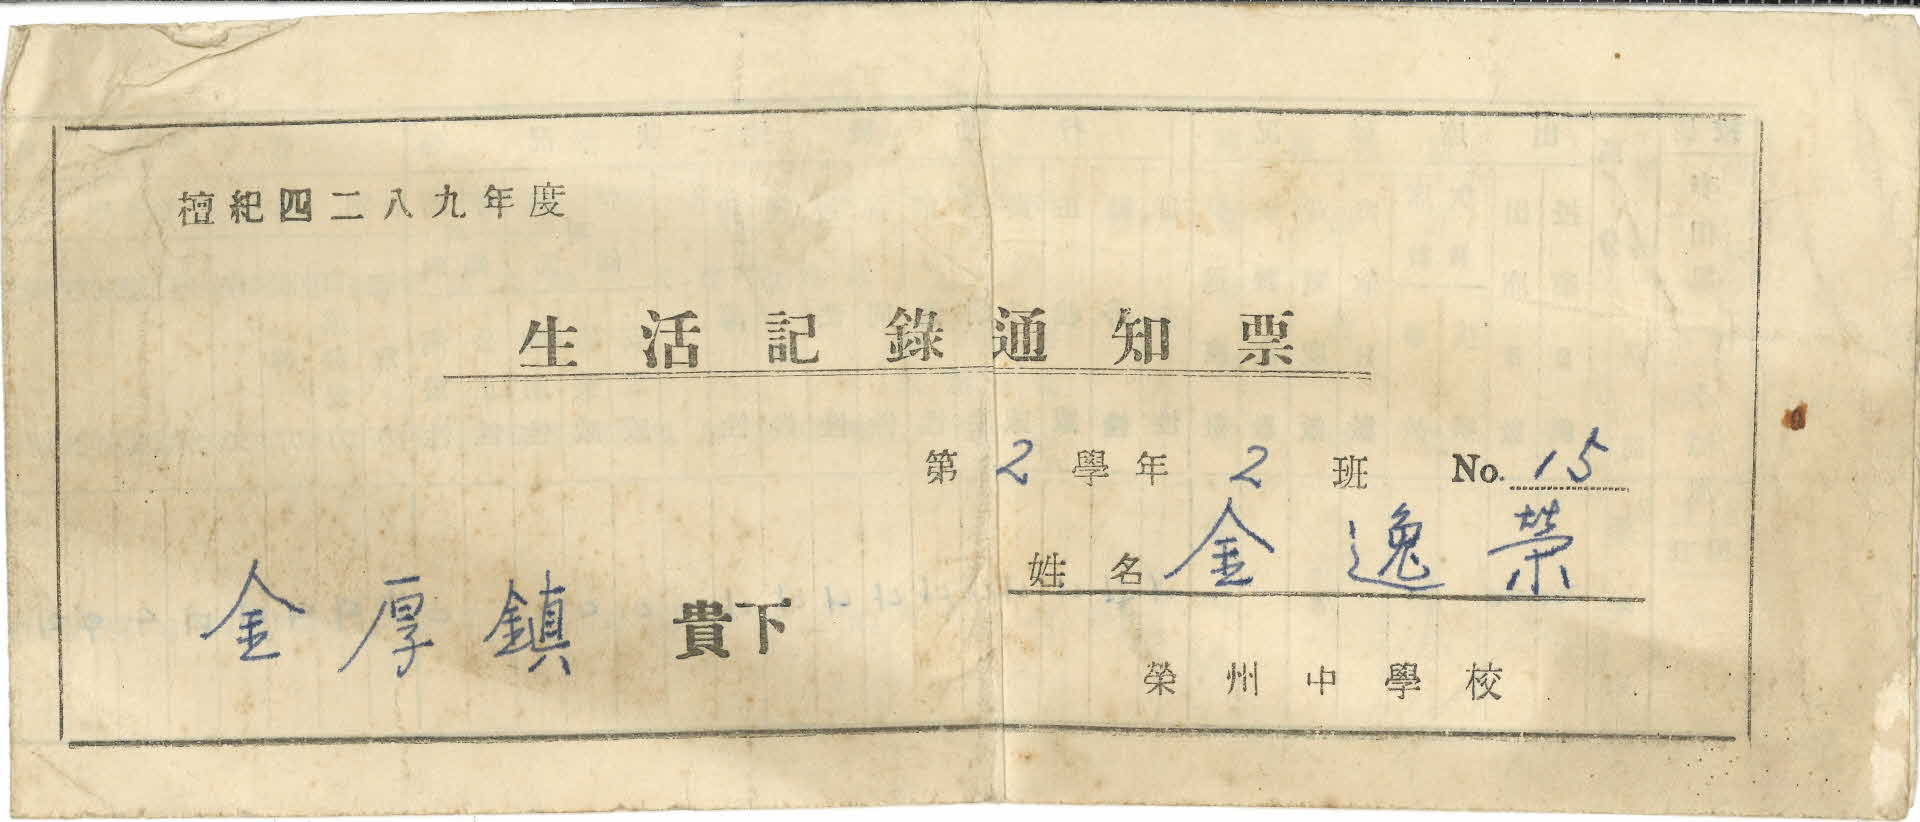 檀紀四二八九年度
生活記錄通知票
第 2 學年 2 班 No. 15
姓名 金逸榮
金厚鎮 貴下
榮州中學校